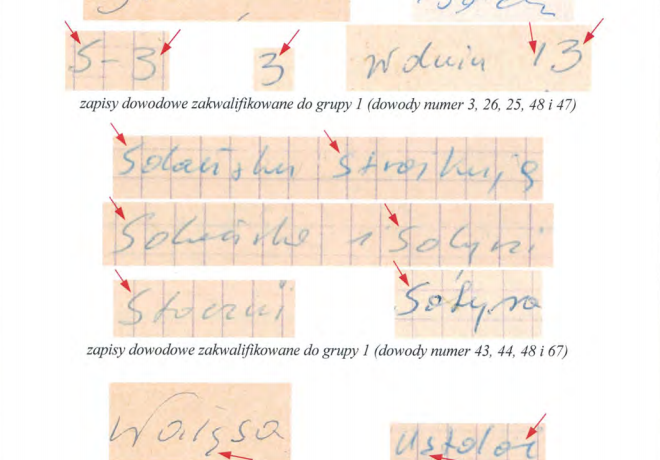 5-3 3 w dniu 13
zapisy dowodowe zakwalifikowane do grupy 1 (dowody numer 3, 26, 25, 48 i 47)
Gdańsku strajkują
Gdańska i Gdyni
Stoczni Gdynia
zapisy dowodowe zakwalifikowane do grupy 1 (dowody numer 43, 44, 48 i 67)
Wałęsa ustalać